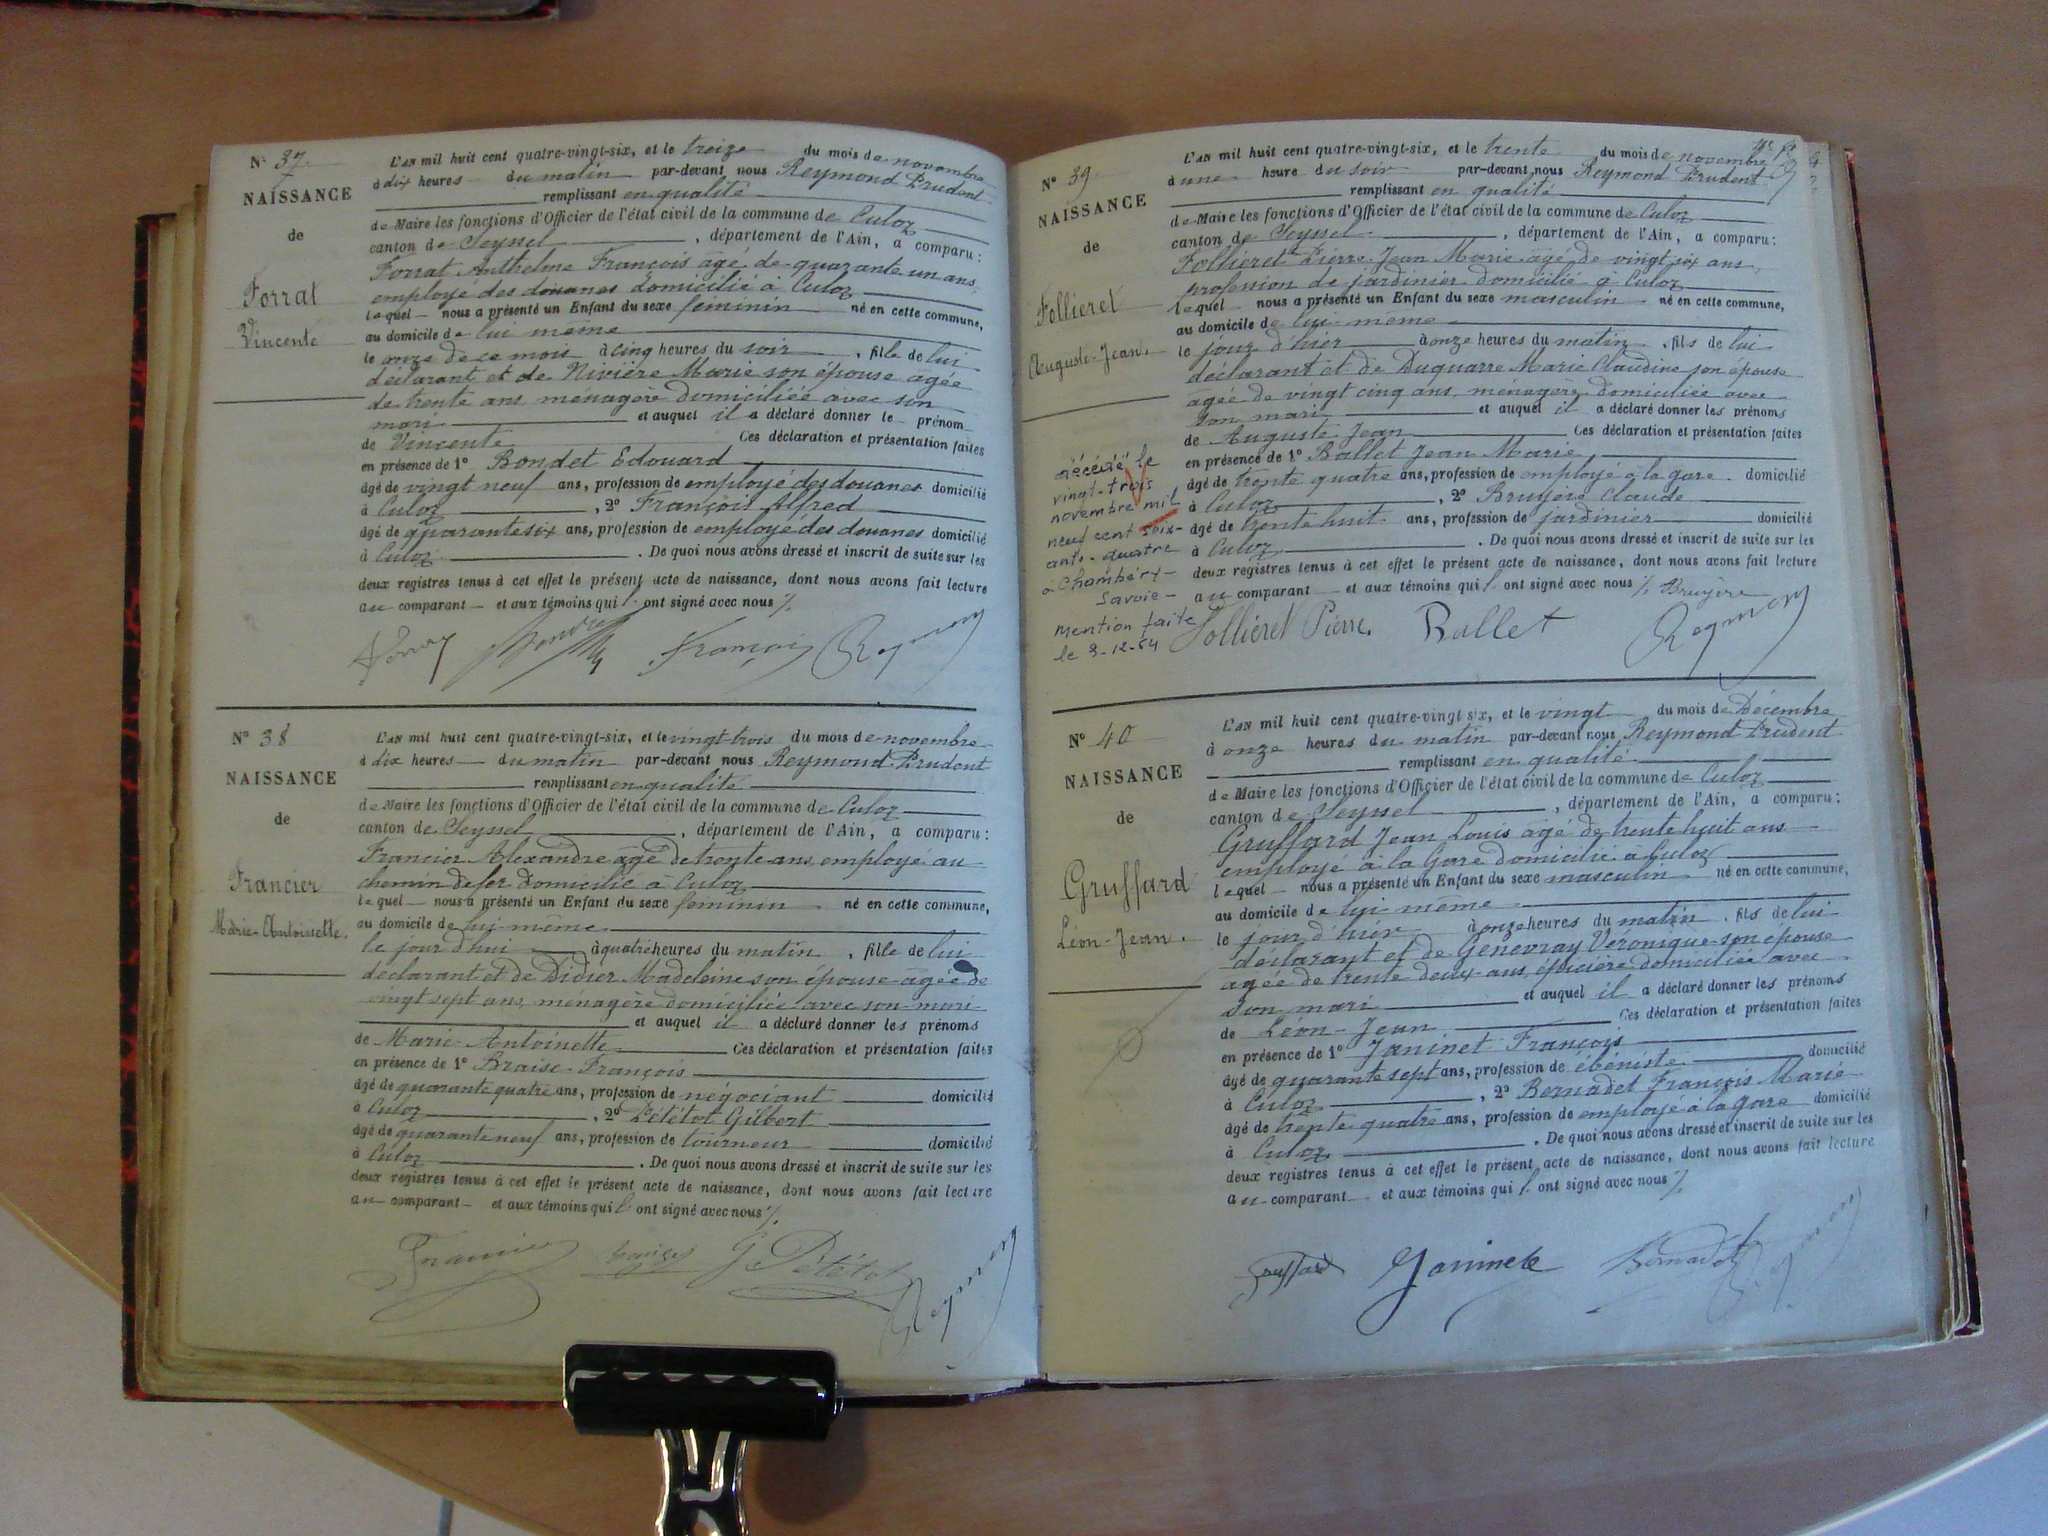 N° 37
NAISSANCE
de
Forrat
Vincente
L'AN mil huit cent quatre-vingt-six, et le treize du mois de novembre
à dix heures du matin par-devant nous Reymond Prudent
remplissant en qualité
de Maire les fonctions d'Officier de l'état civil de la commune de Culoz
canton de Seyssel, département de l'Ain, a comparu:
Forrat Anthelme François âgé de quarante un ans,
employé des douanes domicilié à Culoz
lequel nous a présenté un Enfant du sexe féminin né en cette commune,
au domicile de lui même
le onze de ce mois à cinq heures du soir, fille de lui
déclarant et de Nivière Marie son épouse âgée
de trente ans ménagère domiciliée avec son
mari et auquel il a déclaré donner le prénom
de Vincente Ces déclaration et présentation faites
en présence de 1° Bondet Edouard
âgé de vingt neuf ans, profession de employé des douanes domicilié
à Culoz, 2° François Alfred
âgé de quarante six ans, profession de employé des douanes domicilié
à Culoz. De quoi nous avons dressé et inscrit de suite sur les
deux registres tenus à cet effet le présent acte de naissance, dont nous avons fait lecture
au comparant et aux témoins qui ont signé avec nous
François Reymond
N° 38
NAISSANCE
de
Francier
Marie-Antoinette.
L'AN mil huit cent quatre-vingt-six, et le vingt trois du mois de novembre
à dix heures du matin par-devant nous Reymond Prudent
remplissant en qualité
de Maire les fonctions d'Officier de l'état civil de la commune de Culoz
canton de Seyssel, département de l'Ain, a comparu:
Francier Alexandre âgé de trente ans, employé au
chemin de fer domicilié à Culoz
lequel nous a présenté un Enfant du sexe féminin né en cette commune,
au domicile de lui-même
le jour d'hui à quatre heures du matin, fille de lui
déclarant et de Didier Madeleine son épouse âgée de
vingt sept ans, ménagère domiciliée avec son mari
et auquel il a déclaré donner les prénoms
de Marie Antoinette Ces déclaration et présentation faites
en présence de 1° Braise François
âgé de quarante quatre ans, profession de négociant domicilié
à Culoz, 2° Pététot Gilbert
âgé de quarante neuf ans, profession de tourneur domicilié
à Culoz. De quoi nous avons dressé et inscrit de suite sur les
deux registres tenus à cet effet le présent acte de naissance, dont nous avons fait lecture
au comparant et aux témoins qui ont signé avec nous
Francier G Pététot Reymond
N° 39
NAISSANCE
de
Follieret
Auguste-Jean.
décédé le
vingt-trois
novembre mil
neuf cent soix-
ante-quatre
à Chambéry-
Savoie-
mention faite
le 3-12-64
L'AN mil huit cent quatre-vingt-six, et le trente du mois de novembre
à une heure du soir par-devant nous Reymond Prudent
remplissant en qualité
de Maire les fonctions d'Officier de l'état civil de la commune de Culoz
canton de Seyssel, département de l'Ain, a comparu:
Follieret Pierre Jean Marie âgé de vingt six ans,
profession de jardinier domicilié à Culoz
lequel nous a présenté un Enfant du sexe masculin né en cette commune,
au domicile de lui-même
le jour d'hier à onze heures du matin, fils de lui
déclarant et de Duquarre Marie Claudine son épouse
âgée de vingt cinq ans, ménagère domiciliée avec
son mari et auquel il a déclaré donner les prénoms
de Auguste Jean Ces déclaration et présentation faites
en présence de 1° Ballet Jean Marie
âgé de trente quatre ans, profession de employé à la gare domicilié
à Culoz, 2° Bruyère Claude
âgé de trente huit ans, profession de jardinier domicilié
à Culoz. De quoi nous avons dressé et inscrit de suite sur les
deux registres tenus à cet effet le présent acte de naissance, dont nous avons fait lecture
au comparant et aux témoins qui ont signé avec nous Bruyère
Folliéret Pierre. Ballet Reymond
N° 40
NAISSANCE
de
Gruffard
Léon-Jean.
L'AN mil huit cent quatre-vingt six, et le vingt du mois de Décembre
à onze heures du matin par-devant nous Reymond Prudent
remplissant en qualité
de Maire les fonctions d'Officier de l'état civil de la commune de Culoz
canton de Seyssel, département de l'Ain, a comparu:
Gruffard Jean Louis âgé de trente huit ans
employé à la Gare domicilié à Culoz
lequel nous a présenté un Enfant du sexe masculin né en cette commune,
au domicile de lui même
le jour d'hier à onze heures du matin, fils de lui
déclarant et de Genevray Véronique son épouse
âgée de trente deux ans, épicière domiciliée avec
son mari et auquel il a déclaré donner les prénoms
de Léon-Jean Ces déclaration et présentation faites
en présence de 1° Janinet François
âgé de quarante sept ans, profession de ébéniste domicilié
à Culoz, 2° Bernadet François Marie
âgé de trente quatre ans, profession de employé à la gare domicilié
à Culoz. De quoi nous avons dressé et inscrit de suite sur les
deux registres tenus à cet effet le présent acte de naissance, dont nous avons fait lecture
au comparant et aux témoins qui ont signé avec nous
Gruffard Janinet Bernadet Reymond